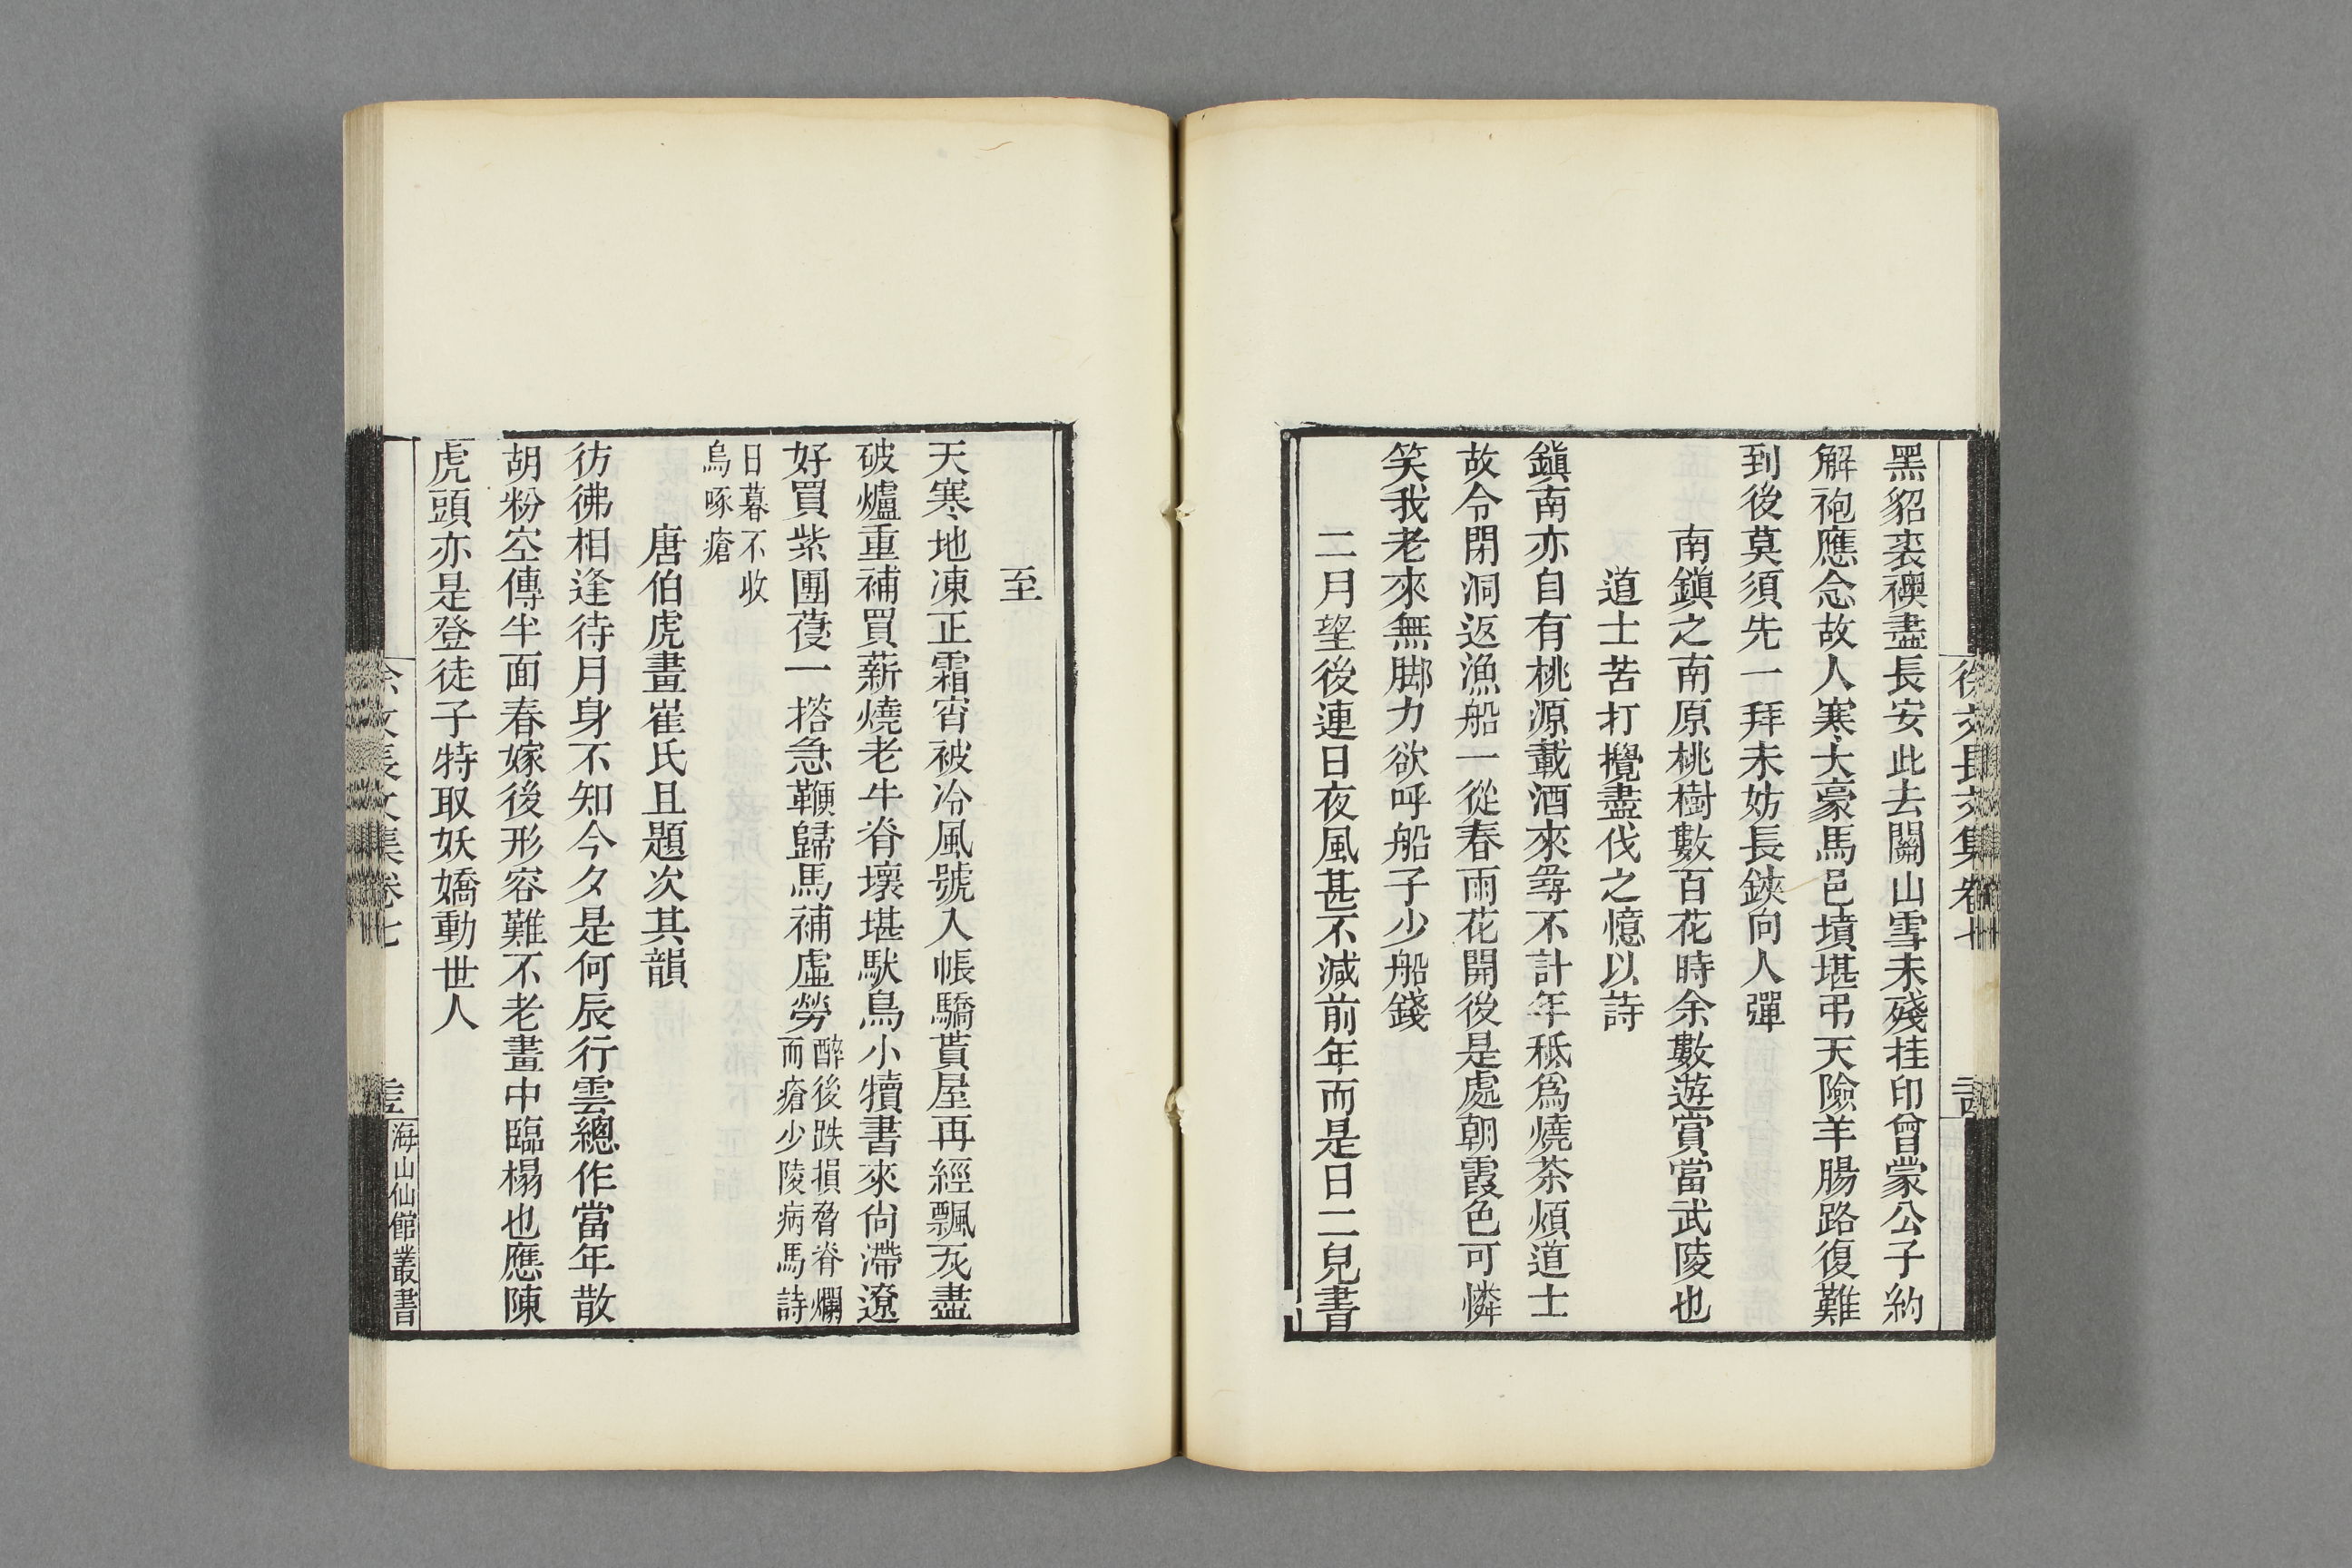 黑貂裘襖盡長安此去關山雪未殘挂印曾蒙公子約
解袍應念故人寒大豪馬邑墳堪弔天險羊腸路復難
到後莫須先一拜未妨長鋏向人彈
南鎭之南原桃樹數百花時余數遊賞當武陵也
道士苦打攪盡伐之憶以詩
鎭南亦自有桃源載酒來尋不計年秪爲燒茶煩道士
故令閉洞返漁船一從春雨花開後是處朝霞色可憐
笑我老來無脚力欲呼船子少船錢
二月望後連日夜風甚不減前年而是日二兒書
至
天寒地凍正霜宵被冷風號入帳驕貰屋再經飄瓦盡
破爐重補買薪燒老牛脊壞堪馱鳥小犢書來尙滯遼
好買紫團葠一搭急鞭歸馬補虛勞
醉後跌損脅脊爛
而瘡少陵病馬詩
日暮不收
烏啄瘡
唐伯虎畫崔氏且題次其韻
彷彿相逢待月身不知今夕是何辰行雲總作當年散
胡粉空傳半面春嫁後形容難不老畫中臨榻也應陳
虎頭亦是登徒子特取妖嬌動世人
徐文長文集卷七
海山仙館叢書